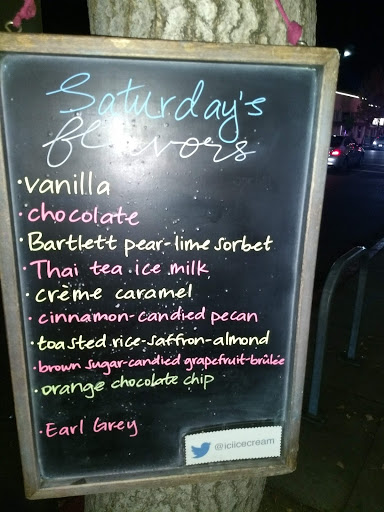 Saturday's
flavors
·vanilla
·chocolate
·Bartlett pear-lime sorbet
·Thai tea ice milk
·crème caramel
·cinnamon-candied pecan
·toasted rice-saffron-almond
·brown sugar-candied grapefruit-brûlée
·orange chocolate chip
·Earl Grey
@iciicecream